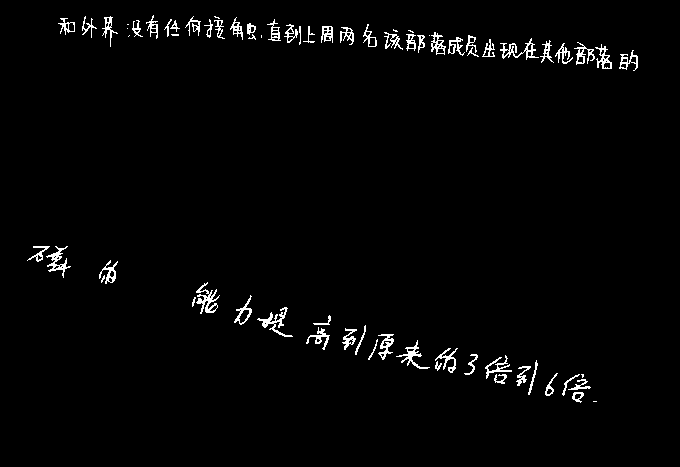 和外界没有任何接触,直到上周两名该部落成员出现在其他部落的
磷的 能力提高到原来的3倍到6倍.